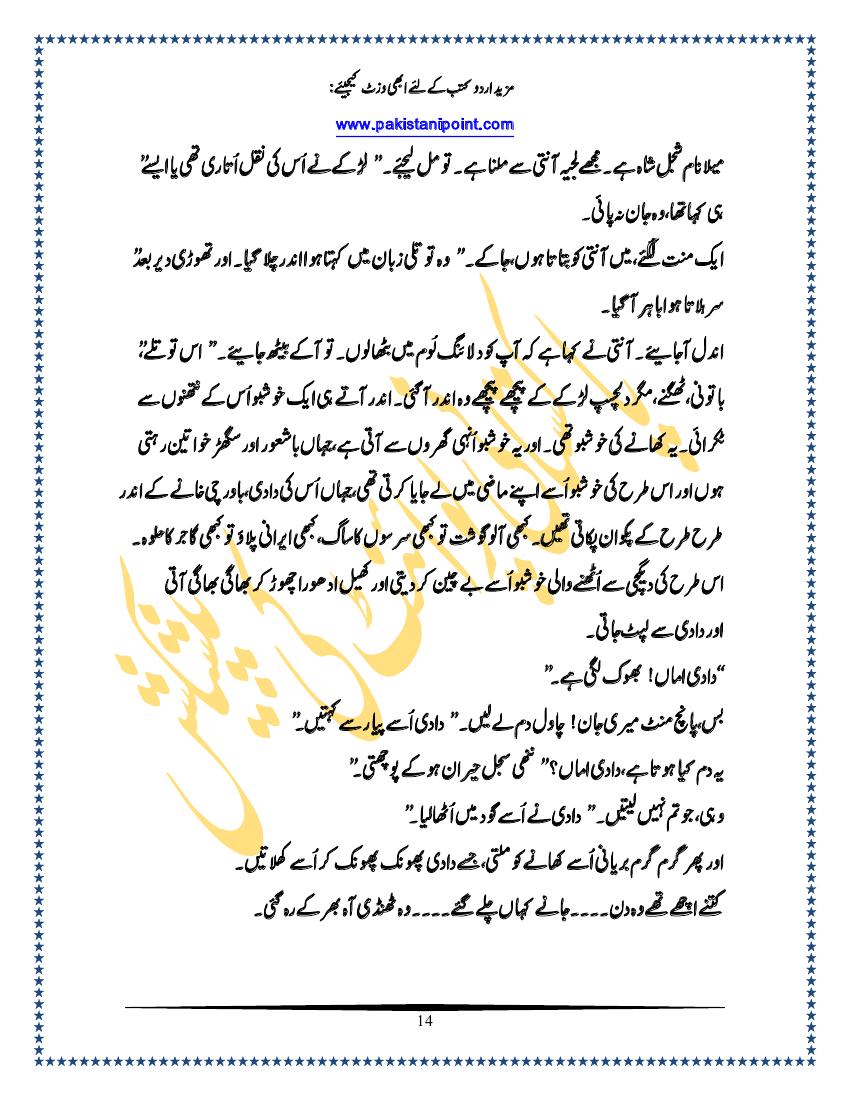 مزید اردو کتب کے لئے ابھی وزٹ کیجیئے:
www.pakistanipoint.com
میلا نام شجل شاہ ہے۔ مجھے نجیہ آنتی سے ملنا ہے۔ تو مل لیجئے۔” لڑکے نے اُس کی نقل اُتاری تھی یا ایسے”
ہی کہا تھا، وہ جان نہ پائی۔
ایک منت لُکئے، میں آنتی کو بتاتا ہوں، جا کے۔” وہ تو تلی زبان میں کہتا ہوا اندر چلا گیا۔ اور تھوڑی دیر بعد”
سر ہلاتا ہوا باہر آ گیا۔
اندل آجایئے۔ آنتی نے کہا ہے کہ آپ کو دلائنگ لُوم میں بٹھا لوں۔ تو آ کے بیٹھ جایئے۔” اس تو تلے،”
باتونی، ٹھگنے، مگر دلچسپ لڑکے کے پیچھے پیچھے وہ اندر آ گئی۔ اندر آتے ہی ایک خوشبو اُس کے نتھنوں سے
ٹکرائی۔ یہ کھانے کی خوشبو تھی۔ اور یہ خوشبو اُنہی گھروں سے آتی ہے، جہاں باشعور اور سگھڑ خواتین رہتی
ہوں اور اس طرح کی خوشبو اُسے اپنے ماضی میں لے جایا کرتی تھی، جہاں اُس کی دادی، باورچی خانے کے اندر
طرح طرح کے پکوان پکاتی تھیں۔ کبھی آلو گوشت تو کبھی سرسوں کا ساگ، کبھی ایرانی پلاؤ تو کبھی گاجر کا حلوہ۔
اس طرح کی دیگچی سے اُٹھنے والی خوشبو اُسے بے چین کر دیتی اور کھیل ادھورا چھوڑ کر بھاگی بھاگی آتی
اور دادی سے لپٹ جاتی۔
“دادی اماں! بھوک لگی ہے۔”
بس، پانچ منٹ میری جان! چاول دم لے لیں۔” دادی اُسے پیار سے کہتیں۔”
یہ دم کیا ہوتا ہے، دادی اماں؟” ننھی سجل حیران ہو کے پوچھتی۔”
وہی، جو تم نہیں لیتیں۔” دادی نے اُسے گود میں اُٹھا لیا۔”
اور پھر گرم گرم بریانی اُسے کھانے کو ملتی، جسے دادی پھونک پھونک کر اُسے کھلاتیں۔
کتنے اچھے تھے وہ دن۔۔۔۔ جانے کہاں چلے گئے۔۔۔۔ وہ ٹھنڈی آہ بھر کے رہ گئی۔
پاکستانی پوائنٹ کی پیشکش
14